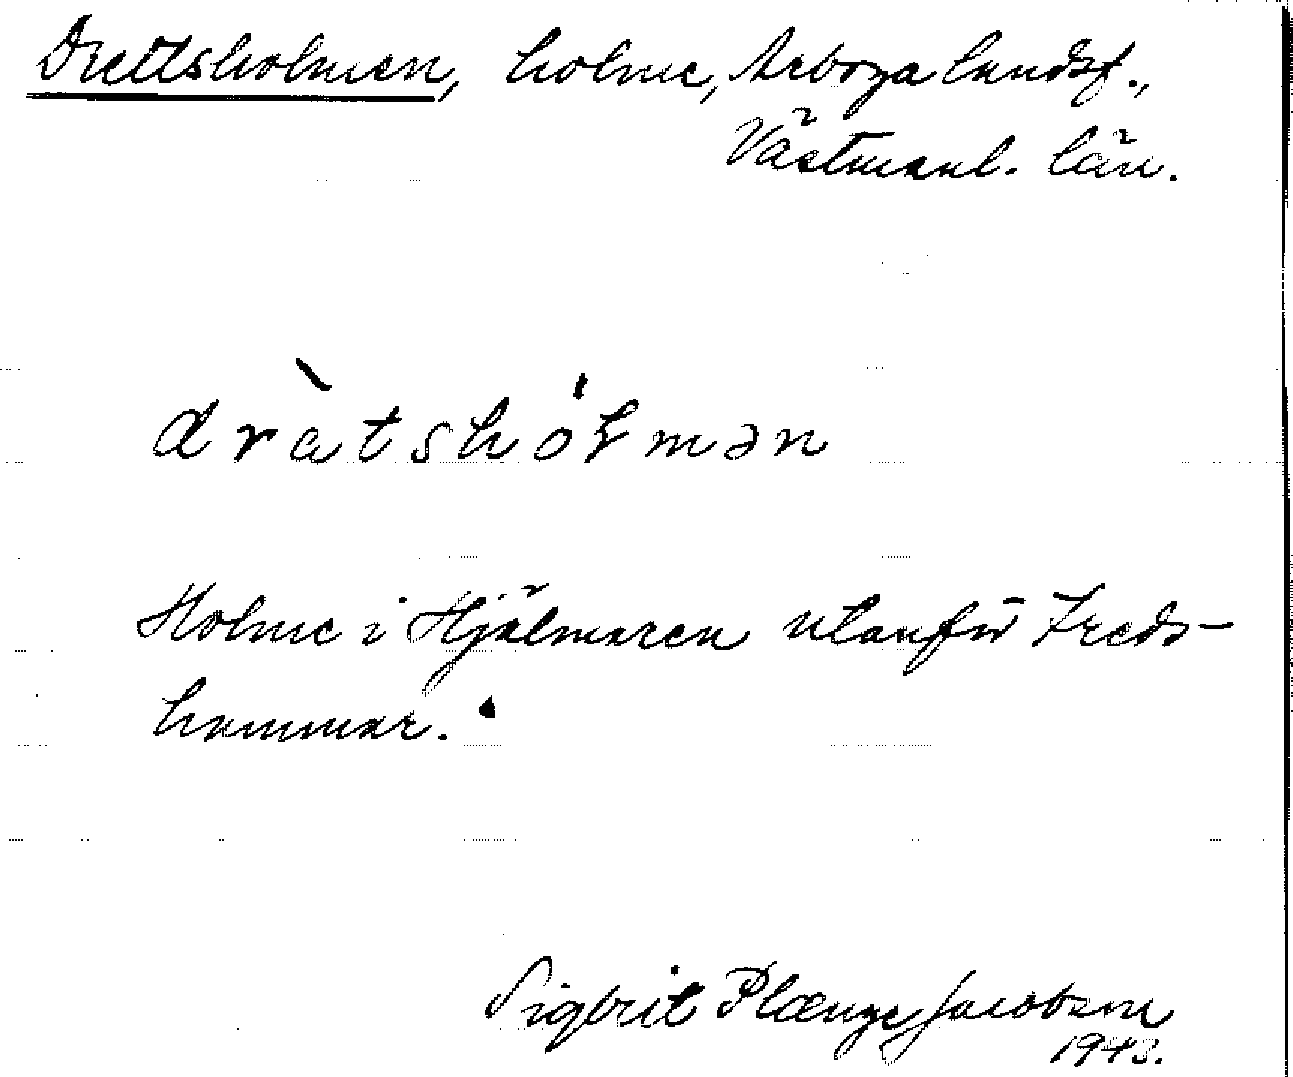 Drettsholmen, holme, Arboga landsf.,
Västmanl. län.
dràtshólmən
Holme i Hjälmaren utanför Freds-
hammar.
Sigbrit Plænge Jacobson
1943.